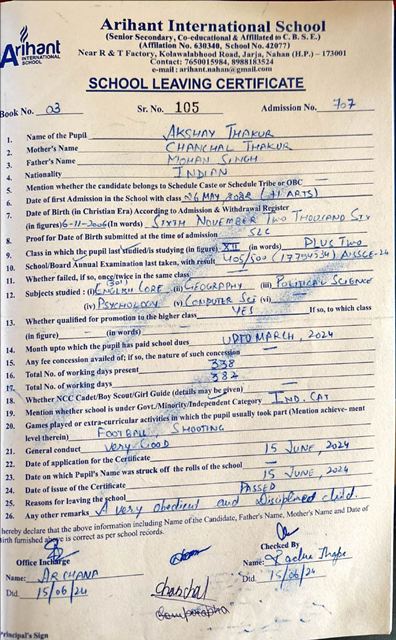 Arihant International School
(Senior Secondary, Co-educational & Affiliated to C. B. S. E.)
(Affilation No. 630340, School No. 42077)
Near R & T Factory, Kolawalabhood Road, Jarja, Nahan (H.P.) – 173001
Contact: 7650015984, 8988183524
e-mail: arihant.nahan@gmail.com
Arihant
INTERNATIONAL
SCHOOL
SCHOOL LEAVING CERTIFICATE
Book No. 03 Sr. No. 105 Admission No. 707
1. Name of the Pupil AKSHAY THAKUR
2. Mother's Name CHANCHAL THAKUR
3. Father's Name MOHAN SINGH
4. Nationality INDIAN
5. Mention whether the candidate belongs to Schedule Caste or Schedule Tribe or OBC —
6. Date of first Admission in the School with class 26 MAY 2022 (XI ARTS)
7. Date of Birth (in Christian Era) According to Admission & Withdrawal Register
(in figures) 16-11-2006 (in words) SIXTH NOVEMBER TWO THOUSAND SIX
8. Proof for Date of Birth submitted at the time of admission SLC
9. Class in which the pupil last studied/is studying (in figure) XII (in words) PLUS TWO
10. School/Board Annual Examination last taken, with result 405/500 AISSCE-24
11. Whether failed, if so, once/twice in the same class —
12. Subjects studied : (i) ENGLISH CORE (301) (ii) GEOGRAPHY (iii) POLITICAL SCIENCE
(iv) PSYCHOLOGY (v) COMPUTER SCI (vi) —
13. Whether qualified for promotion to the higher class YES If so, to which class
(in figure) — (in words) —
14. Month upto which the pupil has paid school dues UPTO MARCH, 2024
15. Any fee concession availed of; if so, the nature of such concession —
16. Total No. of working days present 338
17. Total No. of working days 382
18. Whether NCC Cadet/Boy Scout/Girl Guide (details may be given) —
19. Mention whether school is under Govt./Minority/Independent Category IND. CAT
20. Games played or extra-curricular activities in which the pupil usually took part (Mention achieve- ment
level therein) FOOTBALL SHOOTING
21. General conduct Very GOOD
22. Date of application for the Certificate 15 JUNE, 2024
23. Date on which Pupil's Name was struck off the rolls of the school —
24. Date of issue of the Certificate 15 JUNE, 2024
25. Reasons for leaving the school PASSED
26. Any other remarks A very obedient and Disciplined child.
hereby declare that the above information including Name of the Candidate, Father's Name, Mother's Name and Date of
Birth furnished above is correct as per school records.
Office Incharge Checked By
Name: ARCHANA Name:
Dtd. 15/06/24 Dtd. 15/06/24
Chanchal
Principal's Sign